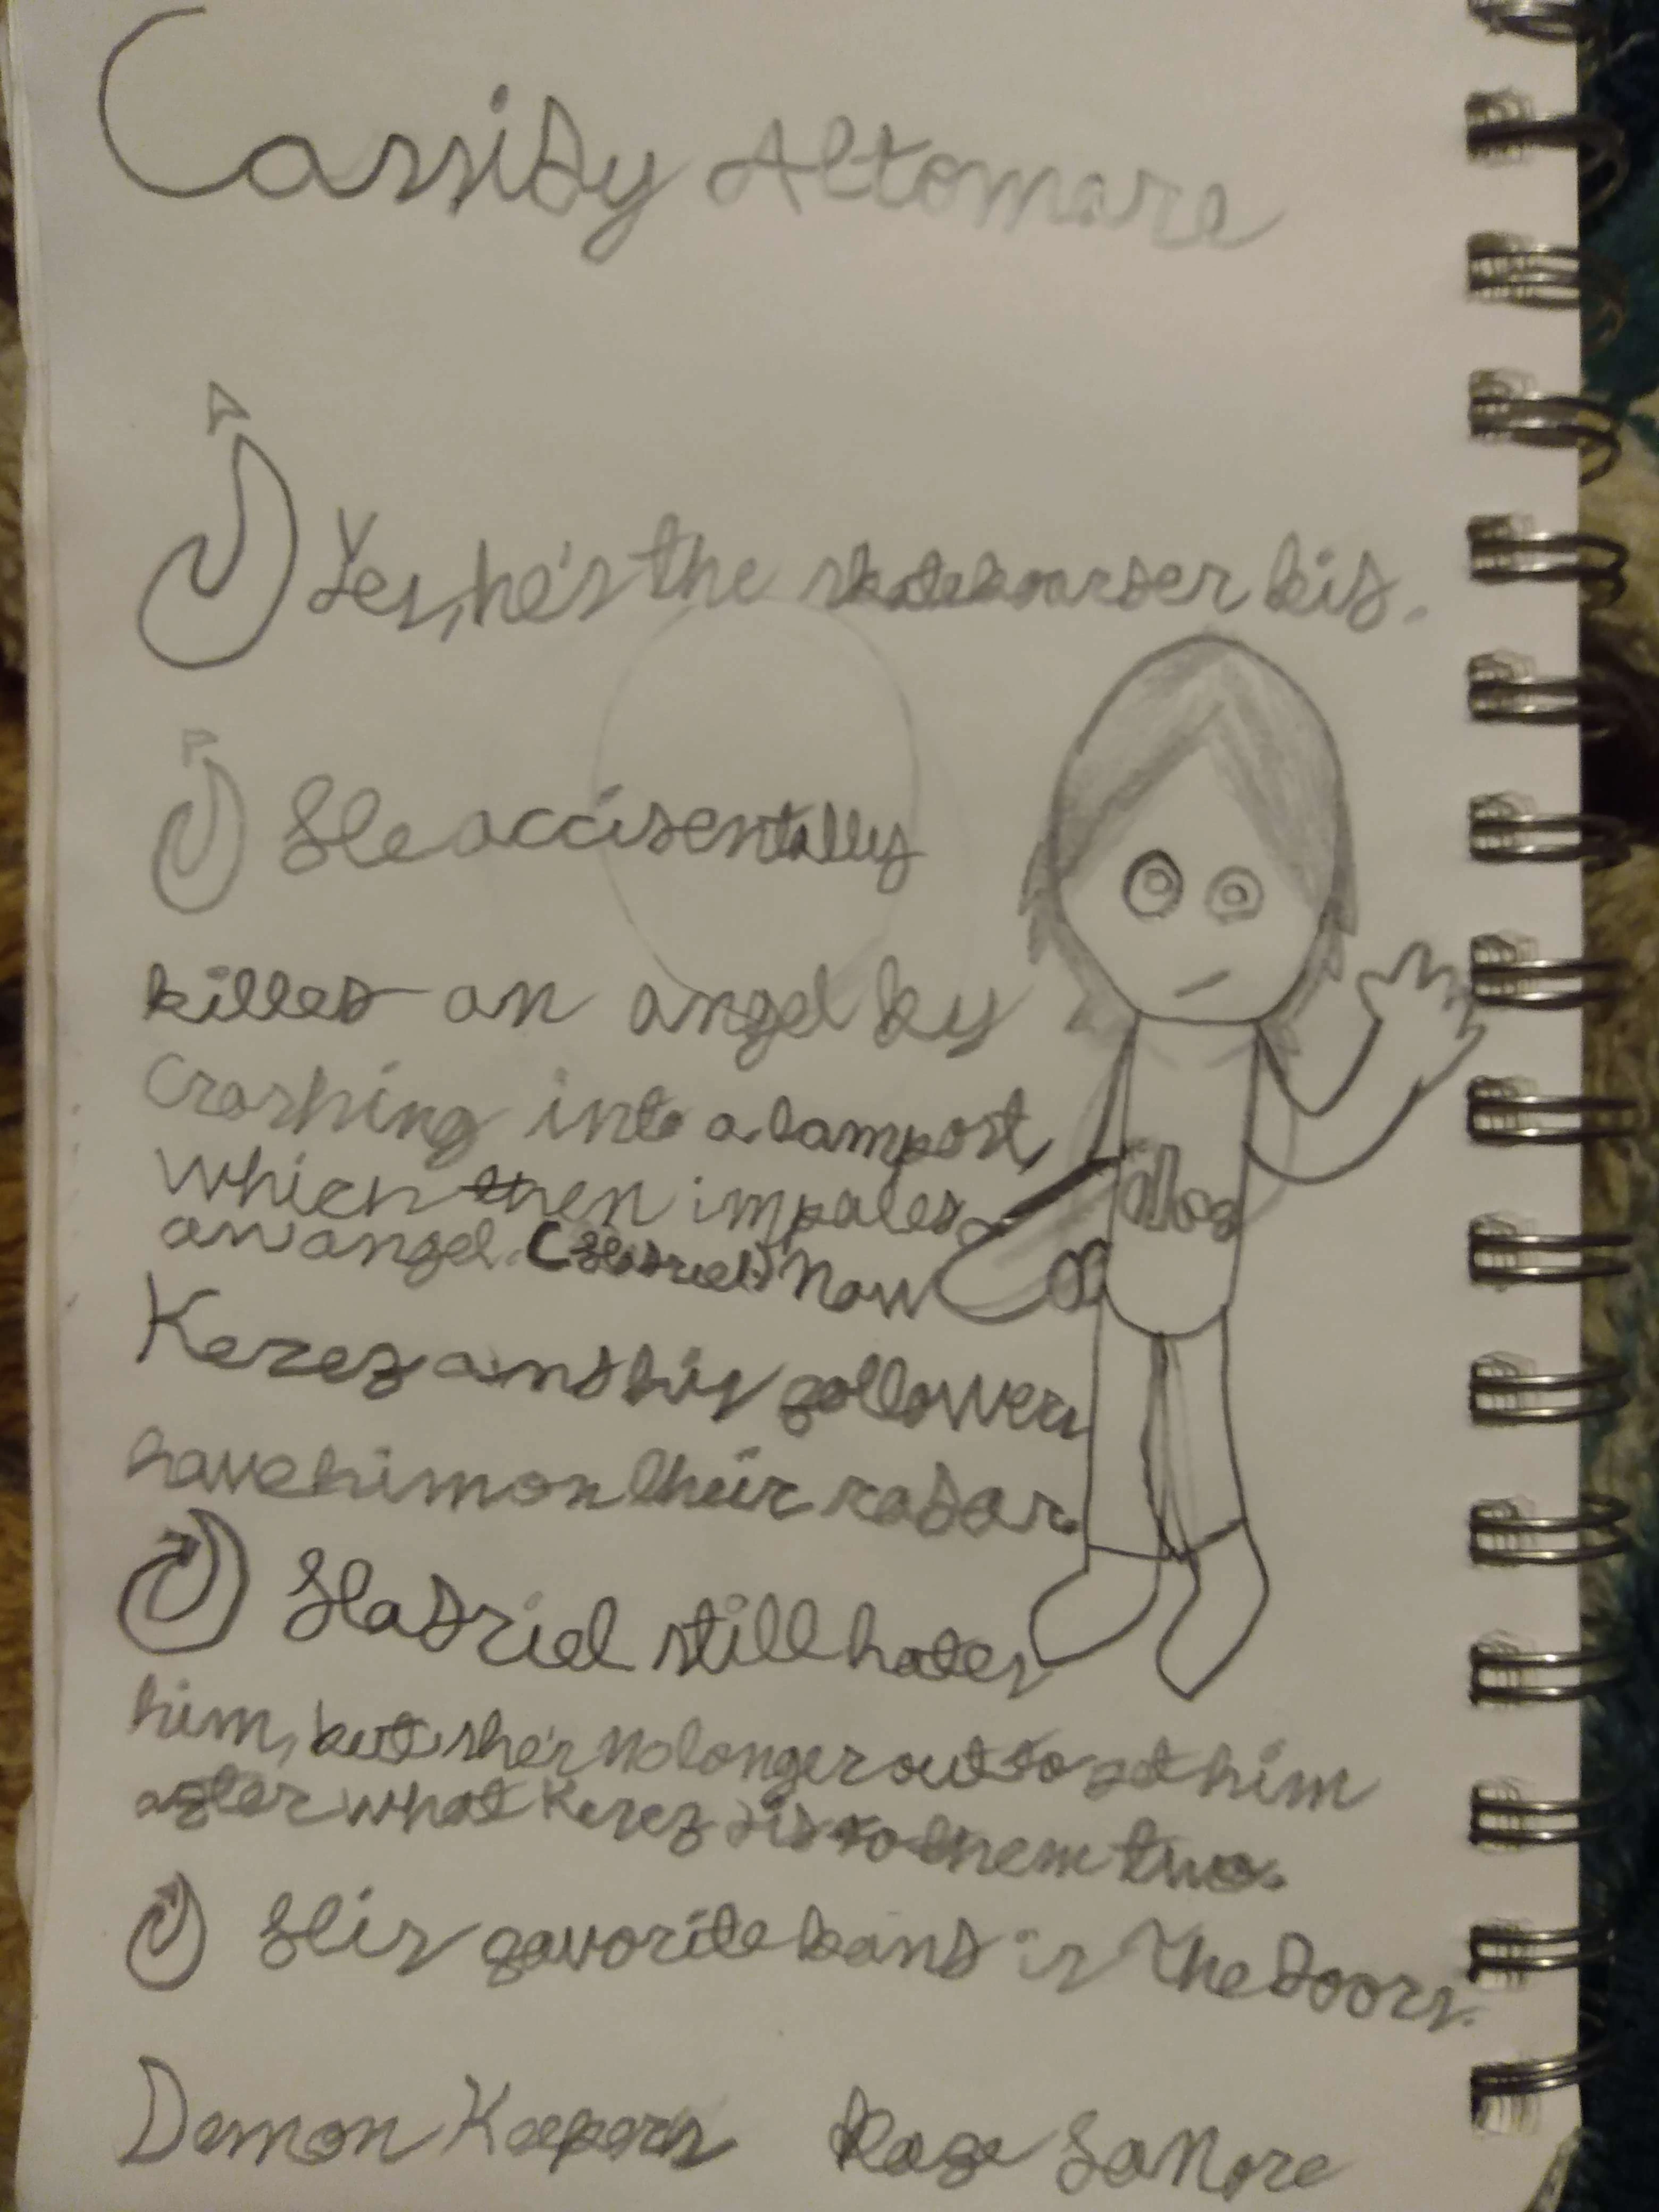 Cassidy Altomare
Yes, he's the skateboarder kid.
He accidentally
killed an angel by
Crashing into a lampost,
which then impales
an angel. (Hadriel.) Now
Kerez and his follower
have him on their radar.
Hadriel still hates
him, but she's no longer out to get him
after what Kerez did to them two.
His favorite band is The Doors.
Demon Keepers Rose LaMore